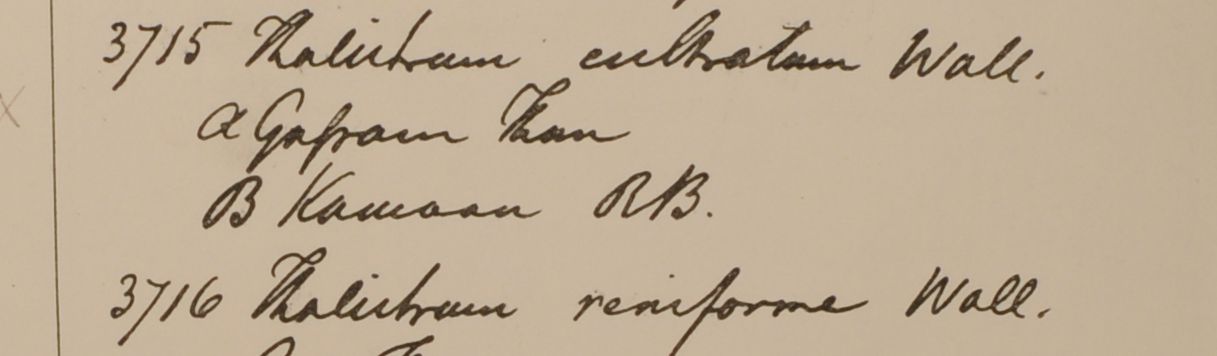 3715 Thalictrum cultratum Wall.
a Gosain Than
B Kamaon RB.
3716 Thalictrum reniforme Wall.